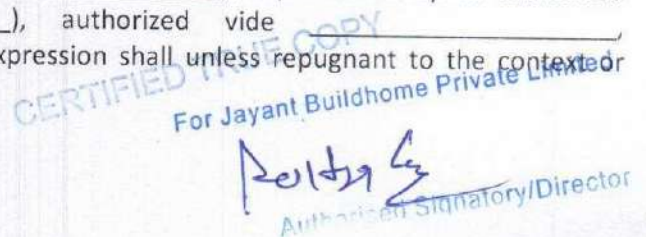 _), authorized vide ____________________,
xpression shall unless repugnant to the context or
CERTIFIED TRUE COPY
For Jayant Buildhome Private Limited
Authorised Signatory/Director